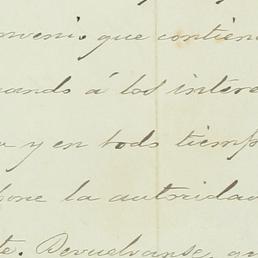 nvenir que contien
uando á los intere
a y en todo tiemp
pone la autoridad
te. Devuelvanse,